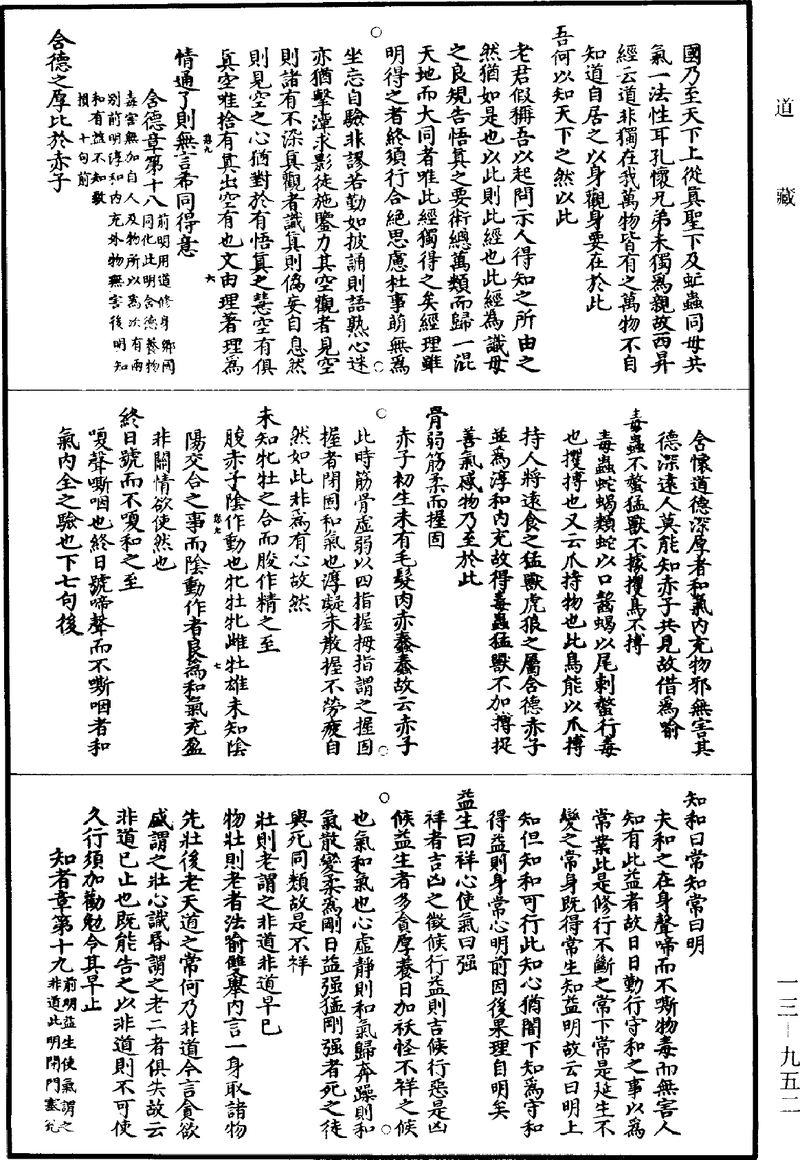 道藏
國乃至天下上從眞聖下及虻蟲同毋共
氣一法性耳孔懷兄弟未獨爲親故西昇
經云道非獨在我萬物皆有之萬物不自
知道自居之以身觀身要在於此
吾何以知天下之然以此
老君假稱吾以起問示人得知之所由之
然猶如是也以此則此經也此經為識毋
之良規告悟眞之要術總萬類而歸一混
天地而大同者唯此經獨得之矣經理雖
明得之者終須行合絕思慮杜事萌無爲
坐忘自驗非謬若勤如披誦則語熟心迷
亦猶擊潭求影徒施鑒力其空觀者見空
則諸有不染眞觀者識眞則僞妄自息然
則見空之心猶對於有悟眞之慧空有俱
眞空唯捨有眞出空有也文由理著理爲
情通了則無言希同得意
含德章第十八
前明用道修身鄉國
同化此明含德養物
毒害無加自人及物所以爲次有兩
別前明淳和內充外物無害後明知
和有益不知致
損十句前
含德之厚比於赤子
含懷道德深厚者和氣內充物邪無害其
德深遠人莫能知赤子共見故借爲喻
毒蟲不螫猛獸不據攫鳥不搏
毒蟲蛇蝎類蛇以口齧蝎以尾刺螫行毒
也攫搏也又云爪持物也此鳥能以爪搏
持人將遠食之猛獸虎狼之屬含德赤子
並爲淳和內充故得毒蟲猛獸不加搏捉
善氣感物乃至於此
骨弱筋柔而握固
赤子初生未有毛髮肉赤蠢蠢故云赤子
此時筋骨虛弱以四指握拇指謂之握固
握者閉固和氣也淳凝未散握不勞疲自
然如此非爲有心故然
未知牝牡之合而朘作精之至
朘赤子陰作動也牝牡牝雌牡雄未知陰
陽交合之事而陰動作者良爲和氣充盈
非關情欲使然也
終日號而不嗄和之至
嗄聲嘶咽也終日號啼聲而不嘶咽者和
氣內全之驗也下七句後
知和曰常知常曰明
夫和之在身聲啼而不嘶物毒而無害人
知有此益者故日日勤行守和之事以爲
常業此是修行不斷之常下常是延生不
變之常身既得常生知益明故云曰明上
知但知和可行此知心猶闇下知爲守和
得益則身常心明前因後果理自明矣
益生曰祥心使氣曰强
祥者吉凶之徵候行益則吉候行惡是凶
候益生者多貪厚養日加祅怪不祥之候
也氣和氣也心虛靜則和氣歸奔躁則和
氣散變柔爲剛日益强猛剛强者死之徒
與死同類故是不祥
壯則老謂之非道非道早已
物壯則老者法喻雙舉內言一身取諸物
先壯後老天道之常何乃非道今言貪欲
盛謂之壯心識昏謂之老二者俱失故云
非道已止也既能告之以非道則不可使
久行須加勸勉令其早止
知者章第十九
前明益生使氣謂之
非道此明閉門塞兌
一三—九五二